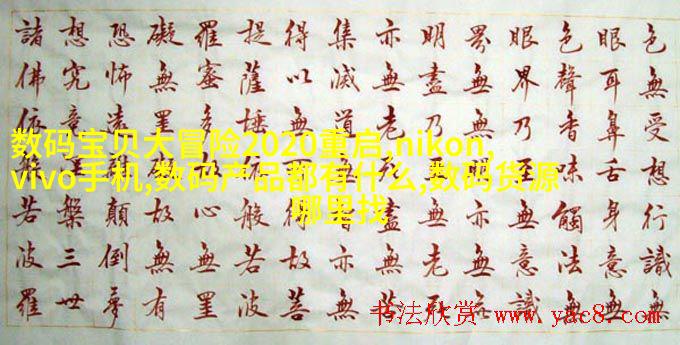 色無受想行識無
眼耳鼻舌身意無
色聲香味觸法無
眼界乃至無意識
界無無明亦無無
明盡乃至無老死
亦無老死盡無苦
集滅道無智亦無
得以無所得故菩
提薩埵依般若波
羅蜜多故心無罣
礙無罣礙故無有
恐怖遠離顛倒夢
想究竟涅槃三世
諸佛依般若波羅
数码宝贝大冒险2020重启,nikon,
vivo手机,数码产品都有什么,数码货源
哪里找
书法欣赏 www.yac8.com